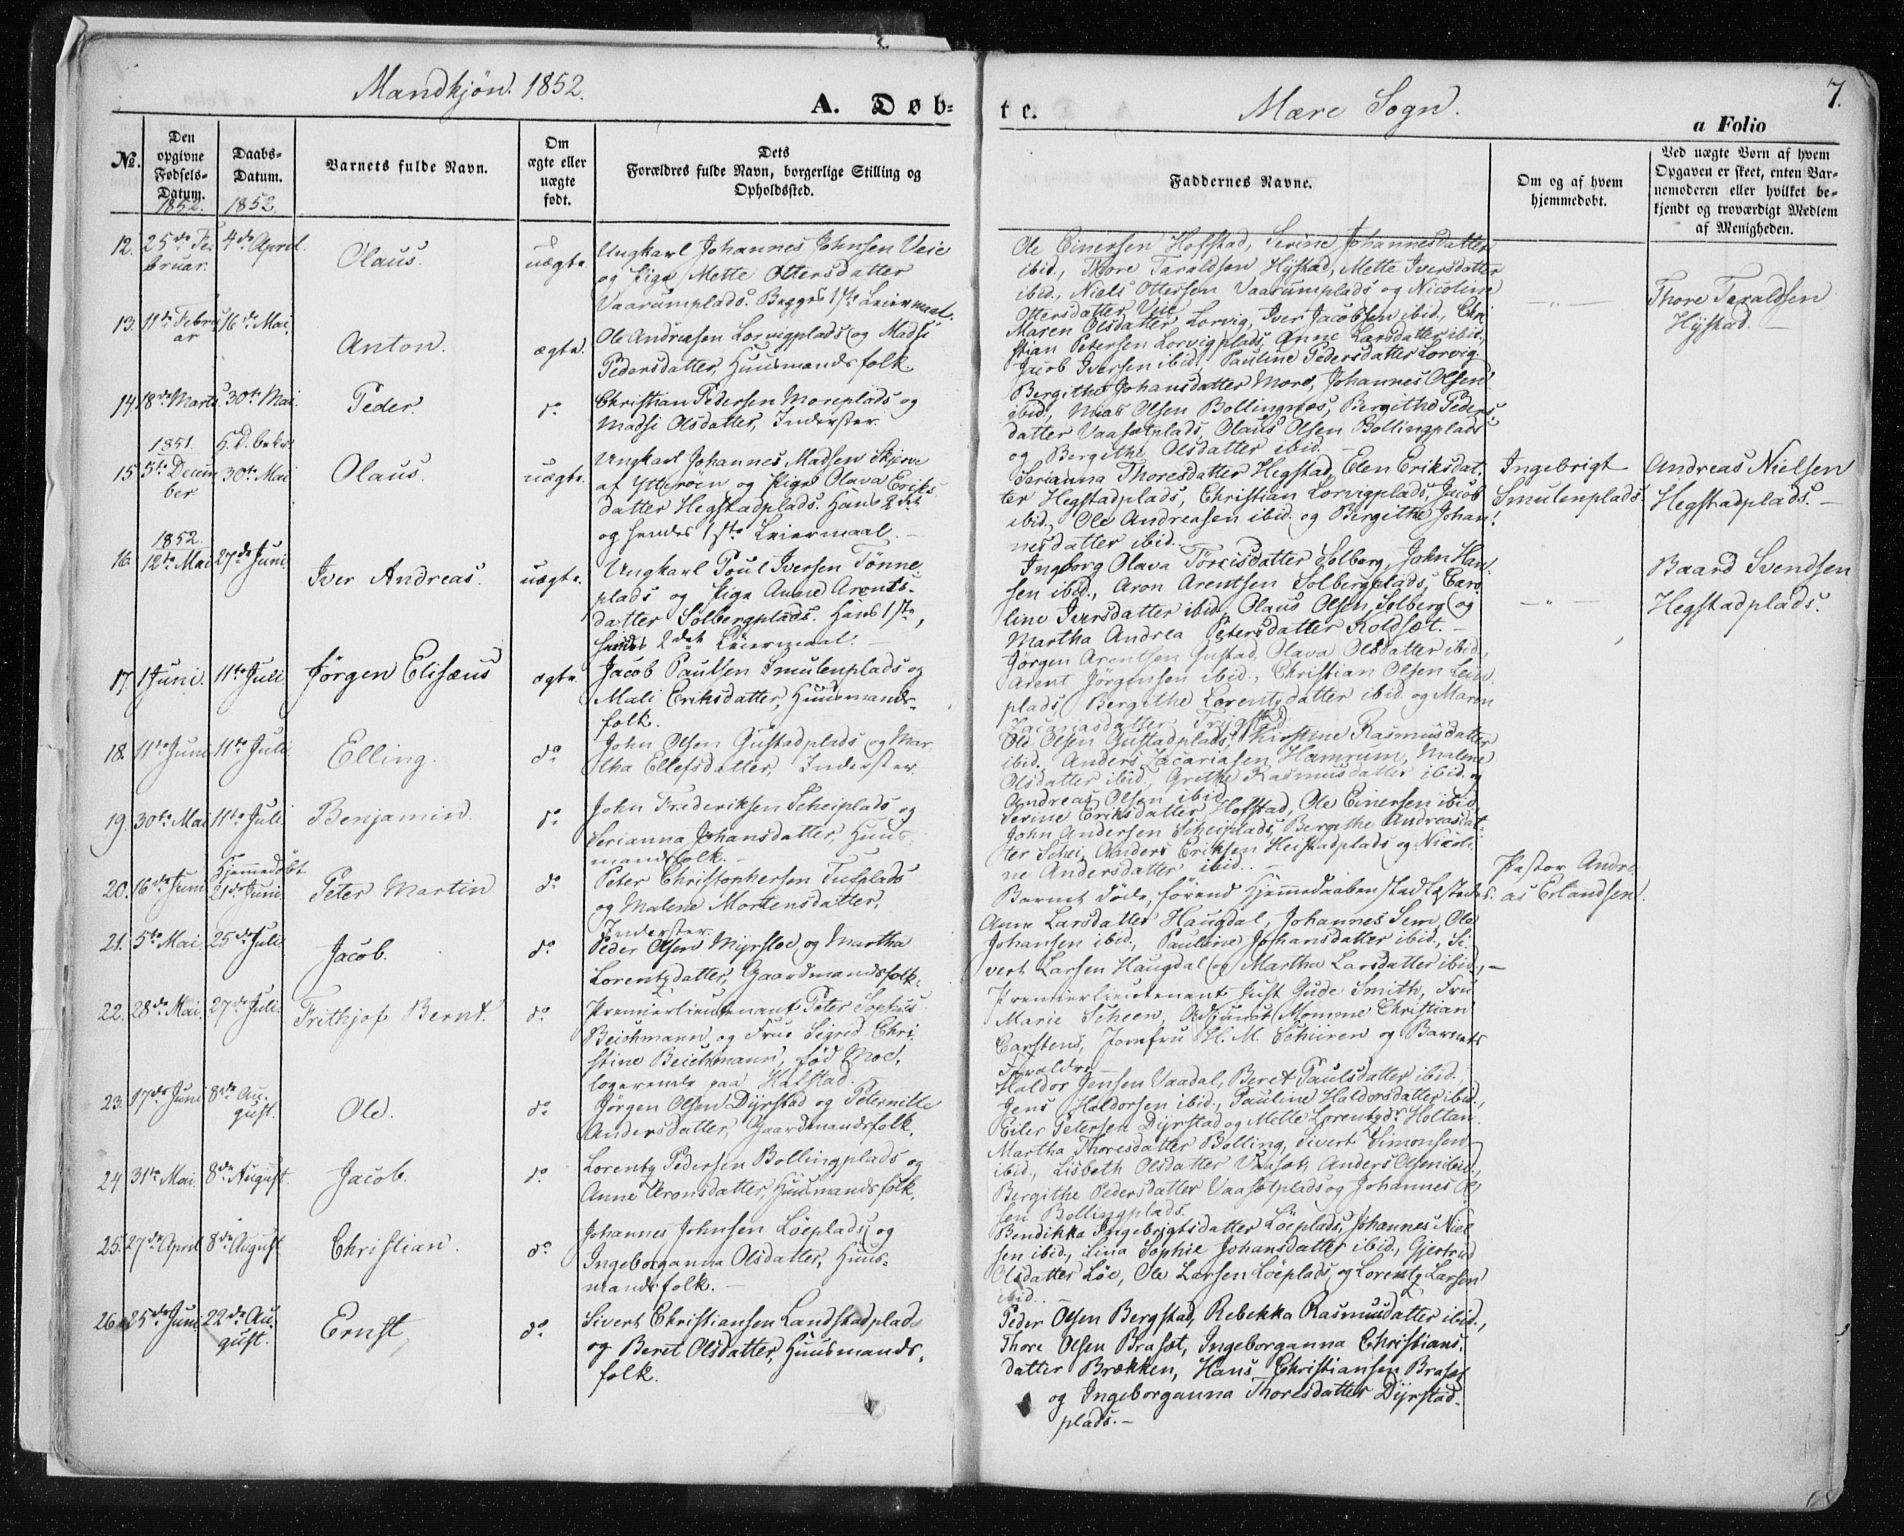 Mandkjøn. 1852.
A. Døb-
te.
Mære Sogn.
7.
a Folio
No.
Den opgivne Fødsels-Datum.
Daabs-Datum.
Barnets fulde Navn.
Om ægte eller uægte født.
Dets Forældres fulde Navn, borgerlige Stilling og Opholdssted.
Faddernes Navne.
Om og af hvem hjemmedøbt.
Ved uægte Børn af hvem Opgaven er skeet, enten Barnemoderen eller hvilket bekjendt og troværdigt Medlem af Menigheden.
1852. 1852.
12. 25de Februar. 4de April. Olaus. uægte.
Ungkarl Johannes Johnsen Veie
og Pige Mette Ottersdatter
Vaarumplads. Begges 1ste Leiermaal.
Ole Einersen Hofstad, Serine Johannesdatter
ibid., Thore Taraldsen Hÿstad, Mette Iversdatter
ibid., Niels Ottersen Vaarumplads og Nicoline
Ottersdatter Veie
Thore Taraldsen
Hÿstad. —
13. 11te Februar 16de Mai. Anton. ægte.
Ole Andreasen Lorvigplads og Madsi
Pedersdatter, Huusmandsfolk
Maren Olsdatter, Lorvig, Iver Jacobsen ibid., Chri
stian Petersen Lorvigplads, Anne Larsdatter ibid.,
Jacob Iversen ibid, Pauline Pedersdatter Lorvig.
14. 18de Marts 30te Mai. Peder. do
Christian Pedersen Moreplads og
Madsi Olsdatter, Inderster.
Bergithe Johansdatter More, Johannes Olsen
ibid., Olsen Bollingnæs, Bergithe Peders
datter Vaasætplads, Olaus Olsen Bollingplads
og Bergithe Olsdatter ibid.
1851. H.D. bekr.
15. 5te December 30te Mai Olaus. uægte.
Ungkarl Johannes Madsen Skjerve
af Ytterøen og Pige Olava Eriks
datter Hegstadplads. Hans 2det
og hendes 1ste Leiermaal. —
Serianna Thoresdatter Hegstad, Elen Eriksdat
ter Hegstadplads, Christian Lorvigplads, Jacob
ibid., Ole Andreasen ibid. og Bergithe Johan
nesdatter ibid.
Ingebrigt
Smulenplads.
Andreas Nielsen
Hegstadplads. —
1852.
16. 12te Mai 27de Juni. Iver Andreas. uægte.
Ungkarl Poul Iversen Tønne
plads og Pige Anne Arents-
datter Solbergplads. Hans 1ste,
hendes 2det Leiermaal. —
Ingeborg Olava Tørrisdatter Solberg, John Han
sen ibid., Aron Arentsen Solbergplads, Caro
line Iversdatter ibid, Olaus Olsen Solberg og
Martha Andrea Petersdatter Koldsæt. —
Baard Svendsen
Hegstadplads.
17. 1 Juni. 11te Juli Jørgen Elisæus ægte.
Jacob Paulsen Smulenplads og
Mali Eriksdatter, Huusmands-
folk.
Jørgen Arentsen Gustad, Olava Olsdatter ibid.,
Arent Jørgensen ibid., Christian Olsen
plads, Bergithe Lorentzdatter ibid. og Maren
Zacariasdatter
18. 11te Juni 11te Juli Elling. do
John Olsen Gustadplads og Mar
tha Ellefsdatter, Inderster.
Ole Olsen Gustadplads, Kirstine Rasmusdatter
ibid. Anders Zacariasen Hamrum, Malene
Olsdatter ibid, Grethe Rasmusdatter ibid. og
Andreas Olsen ibid.
19. 30te Mai 11te Juli Benjamin. do
John Frederiksen Scheiplads og
Serianna Johansdatter, Huus
mandsfolk. —
Serine Eriksdatter Hofstad, Ole Einersen ibid
John Andersen Scheiplads, Bergithe Andreasdat-
ter Schei, Anders Eriksen Heistadplads og Nicoli
ne Andersdatter ibid. —
20. 16de Juni Hjemmedøbt 21de Juni. Peter Martin do
Peter Christophersen Tusplads
og Malene Mortensdatter,
Inderster.
Barnet døde, førend Hjemmedaaben stadfæstedes.
Pastor Andre
as Erlandsen.
21. 5te Mai. 25de Juli. Jacob. do
Peder Olsen Myrstoe og Martha
Lorentzdatter, Gaardmandsfolk.
Anne Larsdatter Haugdal, Johannes Sem, Ole
Johansen ibid., Pauline Johansdatter ibid., Si
vert Larsen Haugdal og Martha Larsdatter ibid., —
22. 28de Mai. 27de Juli. Frithjof Bernt. do
Premierlieutenant Peter Sophus
Beichmann og Frue Sigrid Chri-
stine Beichmann, fød Moe,
logerende paa Halstad.
Premierlieutenant Just Gude Smith, Fru
Marie Scheen, Adjutant Momme Christian
Carstens, Jomfru H. M. Schiiren og Barnets
Forældre. —
23. 17de Juni 8de August. Ole. do
Jørgen Olsen Dÿrstad og Peternille
Andersdatter, Gaardmandsfolk.
Haldor Jensen Vaadal, Beret Paulsdatter ibid.
Jens Haldorsen ibid., Pauline Haldorsdatter ibid.,
Eiler Petersen Dÿrstad og Mette Lorentzdr Holtan.
24 31te Mai. 8de August. Jacob. do
Lorentz Pedersen Bollingplads og
Anne Aronsdatter, Huusmandsfolk.
Martha Thoresdatter Bolling, Sivert Simonsen
ibid., Lisbeth Olsdatter Vaasæt, Anders Olsen ibid.,
Bergithe Pedersdatter Vaasætplads og Johannes Ol
sen Bollingplads.
25. 27de April 8de August Christian. do
Johannes Johnsen Løeplads og
Ingeborganna Olsdatter, Huus-
mandsfolk. —
Bendikka Ingebrigtsdatter Løeplads, Johannes Niel
sen ibid., Lina Sophie Johansdatter ibid., Gjertrud
Olsdatter Løe, Ole Larsen Løeplads og Lorentz Larsen
ibid.
26. 25de Juni 22de August. Ernst, do
Sivert Christiansen Landstadplads
og Beret Olsdatter, Huusmands-
folk.
Peder Olsen Bergstad, Rebekka Rasmusdatter ibid.,
Thore Olsen Brasæt, Ingeborganna Christians-
datter Brækken, Hans Christiansen Brasæt
og Ingeborganna Thoresdatter Dÿrstad-
plads. —